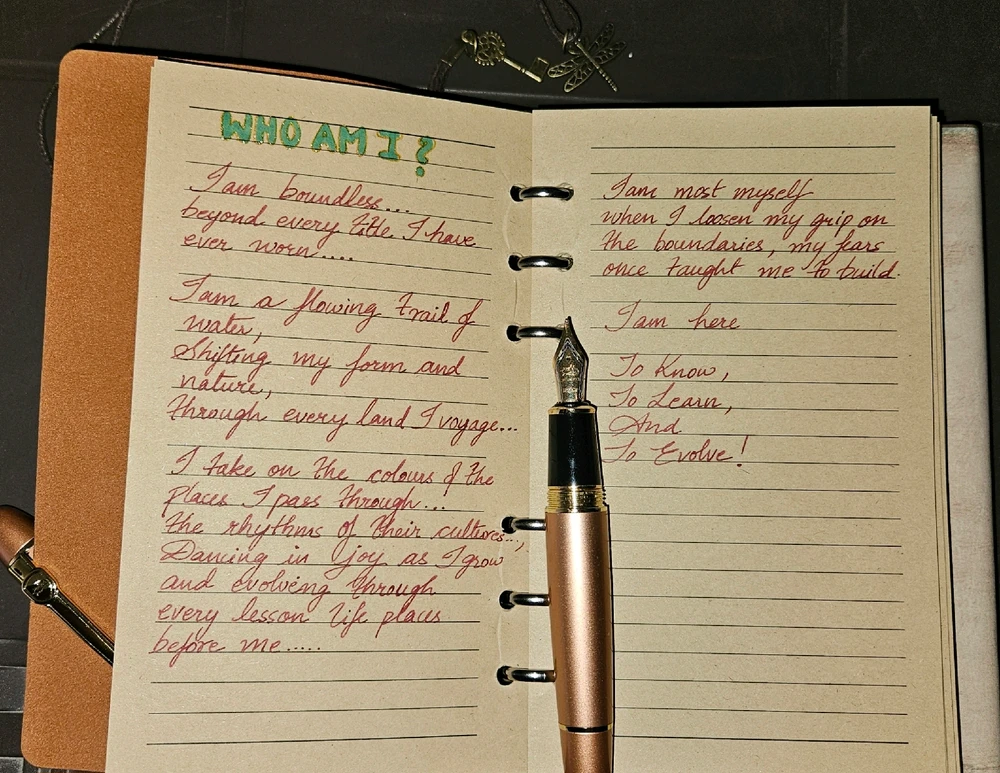 WHO AM I?
I am boundless...
beyond every title I have
ever worn....
I am a flowing trail of
water,
Shifting my form and
nature,
through every land I voyage...
I take on the colours of the
places I pass through...
the rhythms of their cultures...,
Dancing in joy as I grow
and evolving through
every lesson life places
before me.....
I am most myself
when I loosen my grip on
the boundaries, my fears
once taught me to build.
I am here
To Know,
To Learn,
And
To Evolve!